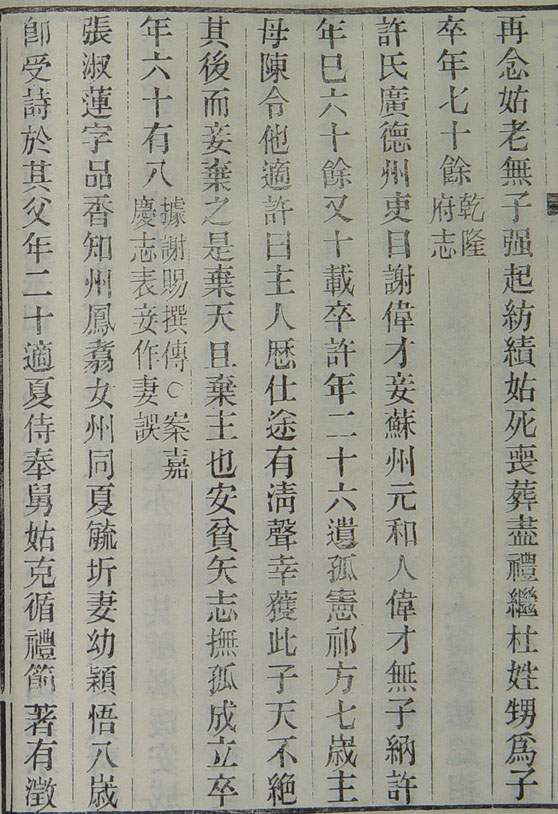 再念姑老無子强起紡績姑死喪葬盡禮繼杜姓甥爲子
卒年七十餘乾隆府志
許氏廣德州吏目謝偉才妾蘇州元和人偉才無子納許
年巳六十餘又十載卒許年二十六遺孤憲祁方七歲主
母陳令他適許曰主人歴仕途有淸聲幸獲此子天不絶
其後而妾棄之是棄天且棄主也安貧矢志撫孤成立卒
年六十有八據謝賜撰傳○案嘉慶志表妾作妻誤
張淑蓮字品香知州鳳翥女州同夏毓圻妻幼穎悟八歲
卽受詩於其父年二十適夏侍奉舅姑克循禮節著有澂